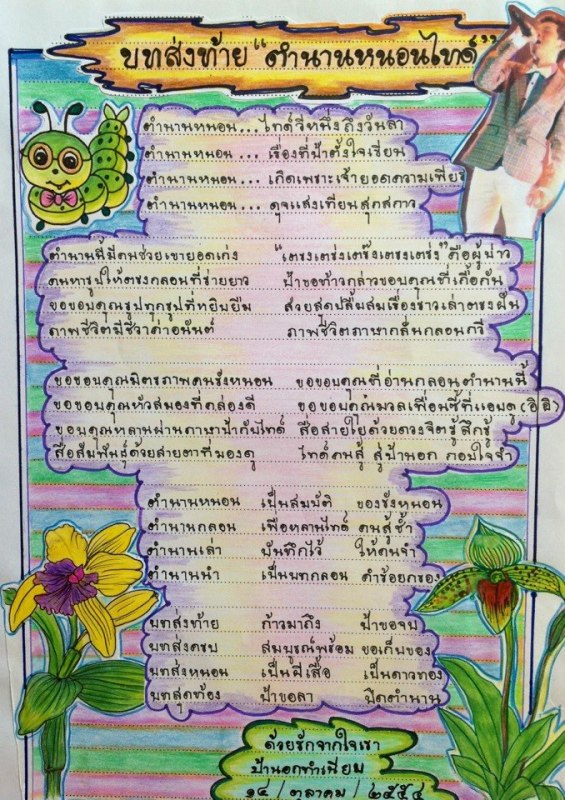 บทส่งท้าย "ตำนานหนอนไทด์"
ตำนานหนอน...ไทด์วีหนึ่งถึงวันลา
ตำนานหนอน...เรื่องที่ป้าตั้งใจเขียน
ตำนานหนอน...เกิดเพราะเจ้ายอดความเพียร
ตำนานหนอน...ดุจแสงเทียนสุกสกาว
ตำนานนี้มีคนช่วยเขายอดเก่ง "เตรงเตร่งเตร๊งเตรงเตร่ง" คือผู้บ่าว
ค้นหารูปให้ตรงกลอนที่ร่ายยาว ป้าขอก้าวกล่าวขอบคุณที่เกื้อกัน
ขอขอบคุณรูปทุกรูปที่หยิบยืม สวยสุดปลื้มสมเรื่องราวเล่าตรงฝัน
ภาพชีวิตมีชีวาค่าอนันต์ ภาพชีวิตภาษากลั่นกลอนกวี
ขอขอบคุณมิตรภาพคนรังหนอน ขอขอบคุณที่อ่านกลอนตำนานนี้
ขอขอบคุณหัวสมองที่คล่องดี ขอขอบคุณมวลเพื่อนซี้ที่แอบดู (อิอิ)
ขอบคุณหลานผ่านภาษาป้ากับไทด์ สื่อสายใยด้วยดวงจิตรู้สึกรู้
สื่อสัมพันธ์ด้วยสายตาที่มองดู ไทด์คนสู้ สู่ป้านอก กอบใจจำ
ตำนานหนอน เป็นสมบัติ ของรังหนอน
ตำนานกลอน เพื่อหลานไทด์ คนสู้ช้ำ
ตำนานเล่า บันทึกไว้ ให้คนจำ
ตำนานนำ เป็นบทกลอน คำร้อยกรอง
บทส่งท้าย ก้าวมาถึง ป้าขอจบ
บทส่งครบ สมบูรณ์พร้อม ขอเก็บของ
บทส่งหนอน เป็นผีเสื้อ เป็นดาวทอง
บทสุดท้อง ป้าขอลา ปิดตำนาน
ด้วยรักจากใจเรา
ป้านอกทำเนียบ
๑๔ / ตุลาคม / ๒๕๕๔